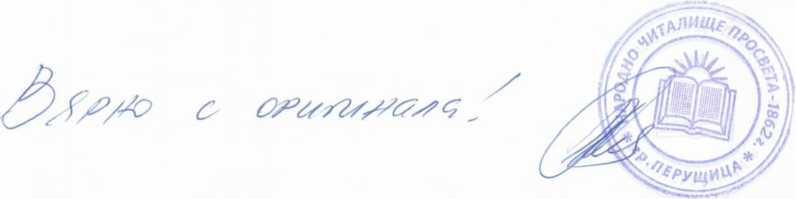 Вярно с оригинала!
НАРОДНО ЧИТАЛИЩЕ ПРОСВЕТА-1862г.
* гр.ПЕРУЩИЦА *